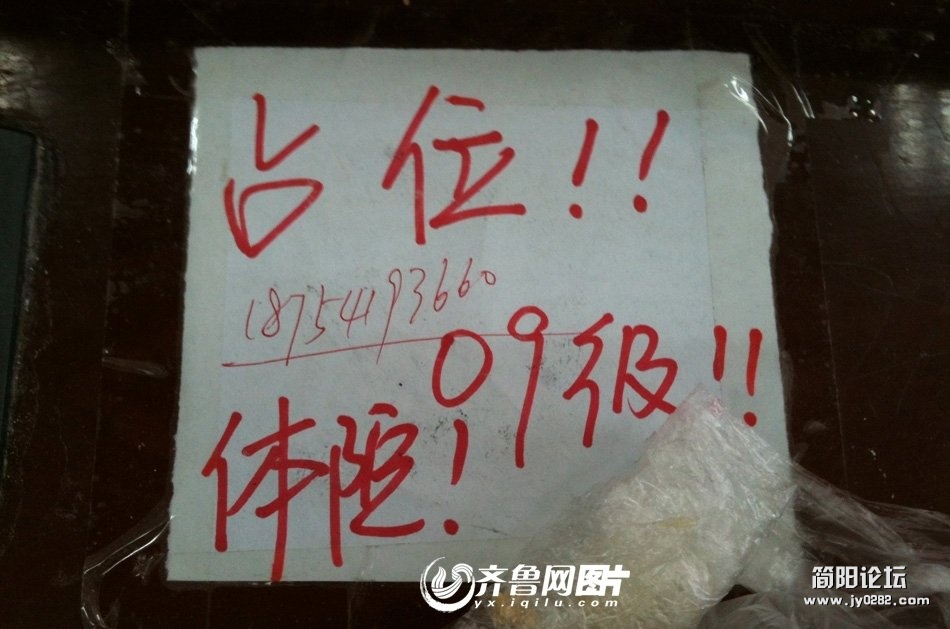 占位!!
18754193660
09级!!
体院!
齐鲁网图片
yx.iqilu.com
简阳论坛
www.jy0282.com